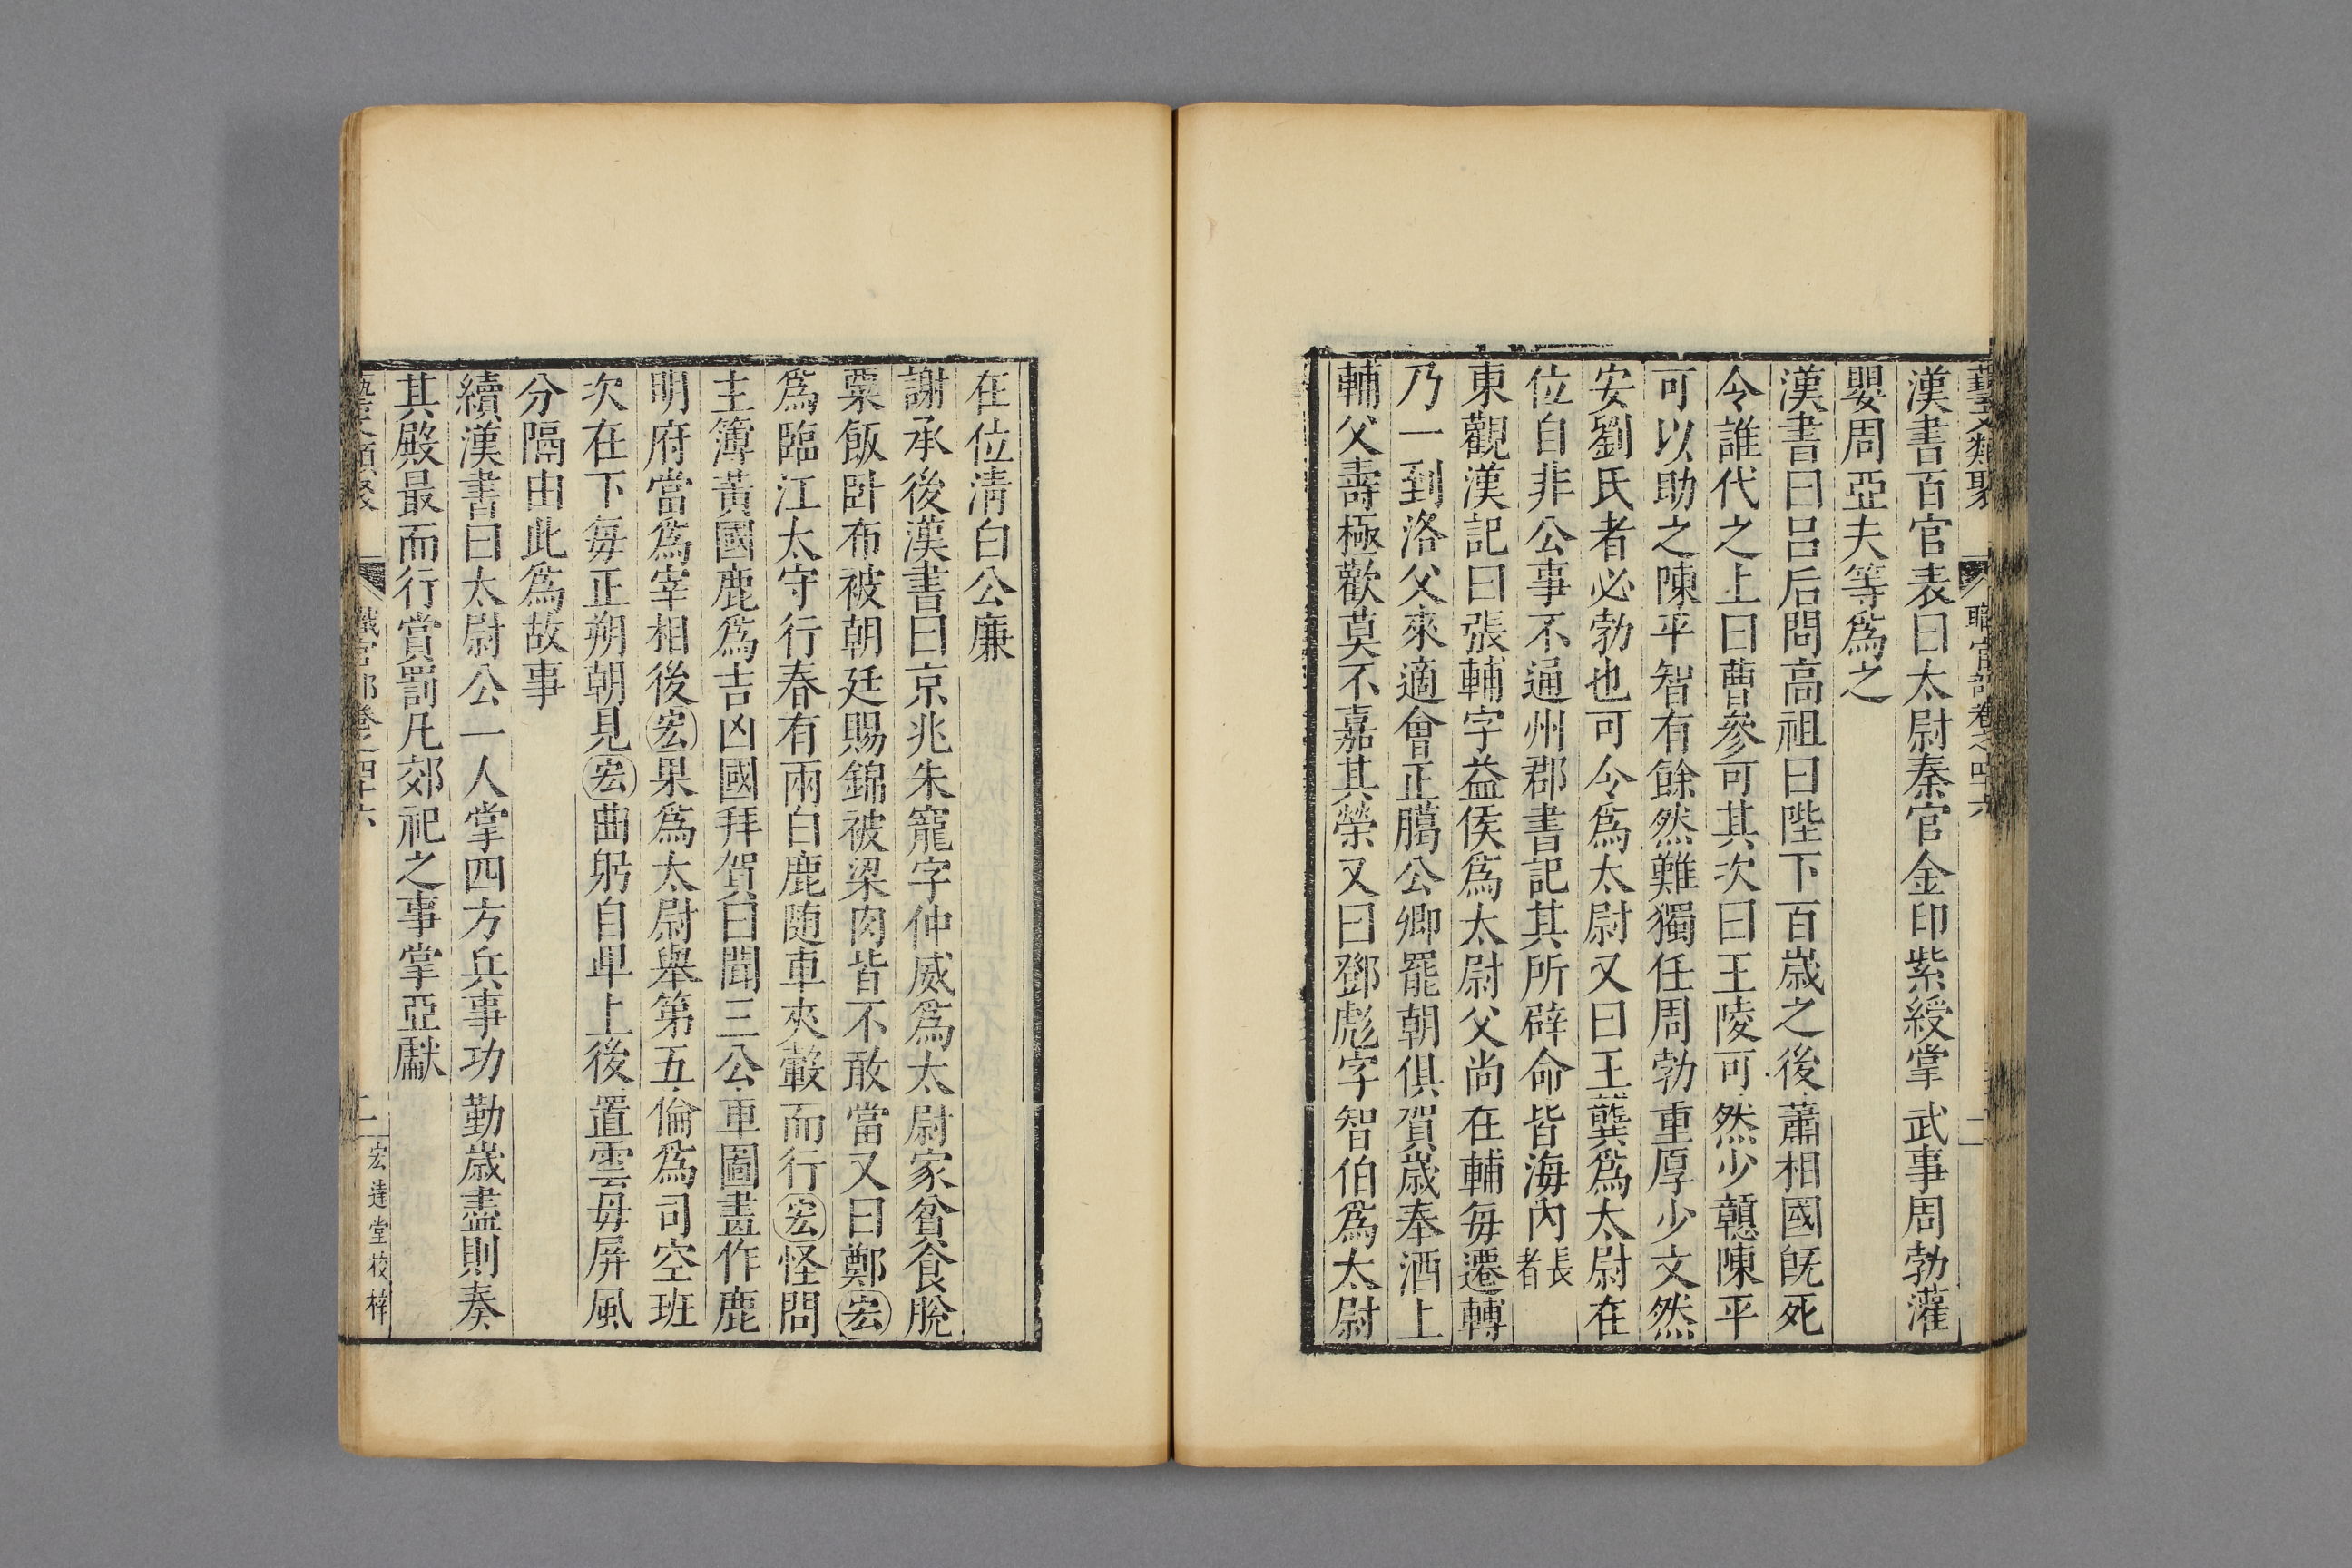 藝文類聚 職官部卷之四十六 二
漢書百官表曰太尉秦官金印紫綬掌武事周勃灌
嬰周亞夫等爲之
漢書曰呂后問高祖曰陛下百歲之後蕭相國旣死
令誰代之上曰曹參可其次曰王陵可然少戇陳平
可以助之陳平智有餘然難獨任周勃重厚少文然
安劉氏者必勃也可令爲太尉又曰王龔爲太尉在
位自非公事不通州郡書記其所辟命皆海內長者
東觀漢記曰張輔字益侯爲太尉父尚在輔每遷轉
乃一到洛父來適會正臈公卿罷朝俱賀歲奉酒上
輔父壽極歡莫不嘉其榮又曰鄧彪字智伯爲太尉
在位清白公廉
謝承後漢書曰京兆朱寵字仲威爲太尉家貧食脫
粟飯卧布被朝廷賜錦被梁肉皆不敢當又曰鄭宏
爲臨江太守行春有兩白鹿随車夾轂而行宏怪問
主簿黃國鹿爲吉凶國拜賀曰聞三公車圖畫作鹿
明府當爲宰相後宏果爲太尉舉第五倫爲司空班
次在下每正朔朝見宏曲躬自卑上後置雲母屏風
分隔由此爲故事
續漢書曰太尉公一人掌四方兵事功勤歲盡則奏
其殿最而行賞罰凡郊祀之事掌亞獻
藝文類聚 職官部卷之四十六 二 宏達堂校梓